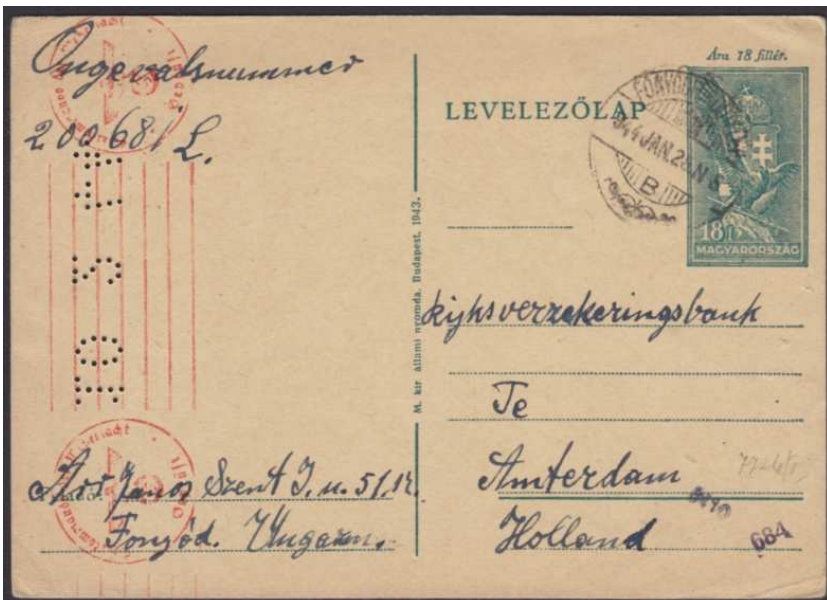 Ongevalsnummer
200681 L.
Ára 18 fillér.
LEVELEZŐLAP
944 JAN. 2
B
18
MAGYARORSZÁG
M. kir. állami nyomda, Budapest. 1943.
Rijksverzekeringsbank
Te
Amterdam
Holland
János Szent J. u. 5/12.
Fonyód. Ungarn.
684